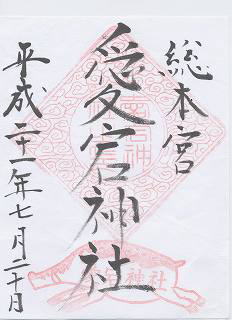 総本宮
愛宕神社
平成二十一年七月二十日